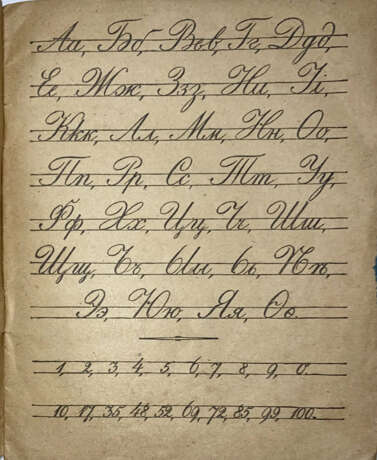 Аа, Бб, Ввв, Гг, Ддд,
Ее, Жж, Ззз, Ии, Іі,
Ккк, Лл, Мм, Нн, Оо,
Пп, Рр, Сс, Тт, Уу,
Фф, Хх, Цц, Чч, Шш,
Щщ, Ъъ, Ыы, Ьь, Ѣѣ,
Ээ, Юю, Яя, Ѳѳ.
1, 2, 3, 4, 5, 6, 7, 8, 9, 0.
10, 17, 35, 48, 52, 69, 72, 85, 99, 100.